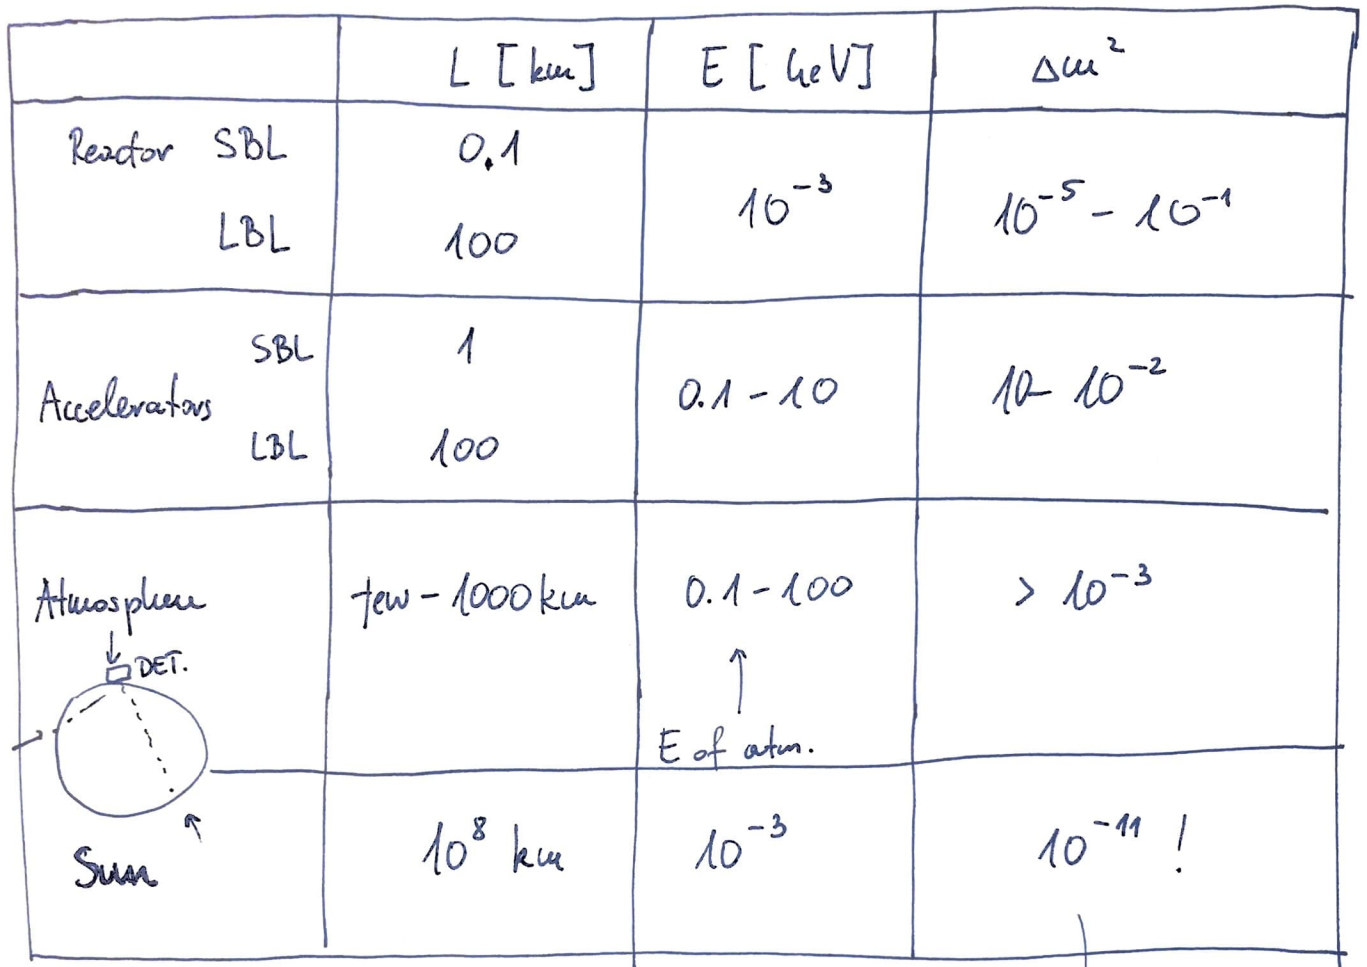 L [km] E [GeV] Δm²
Reactor SBL 0.1
10⁻³ 10⁻⁵ - 10⁻¹
LBL 100
SBL 1
Accelerators 0.1 - 10 10 - 10⁻²
LBL 100
Atmosphere few - 1000 km 0.1 - 100 > 10⁻³
DET.
E of atm.
Sun 10⁸ km 10⁻³ 10⁻¹¹ !